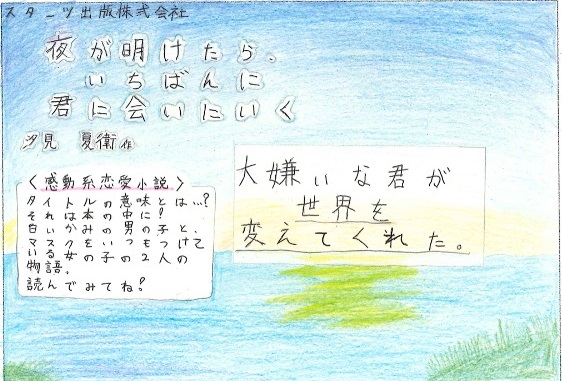 スターツ出版株式会社
夜が明けたら、
いちばんに
君に会いにいく
汐見 夏衛 作
大嫌いな君が
世界を
変えてくれた。
〈感動系恋愛小説〉
タイトルの意味とは…?
それは本の中に!
白いかみの男の子と、
マスクをいつもつけて
いる女の子の2人の
物語。
読んでみてね?